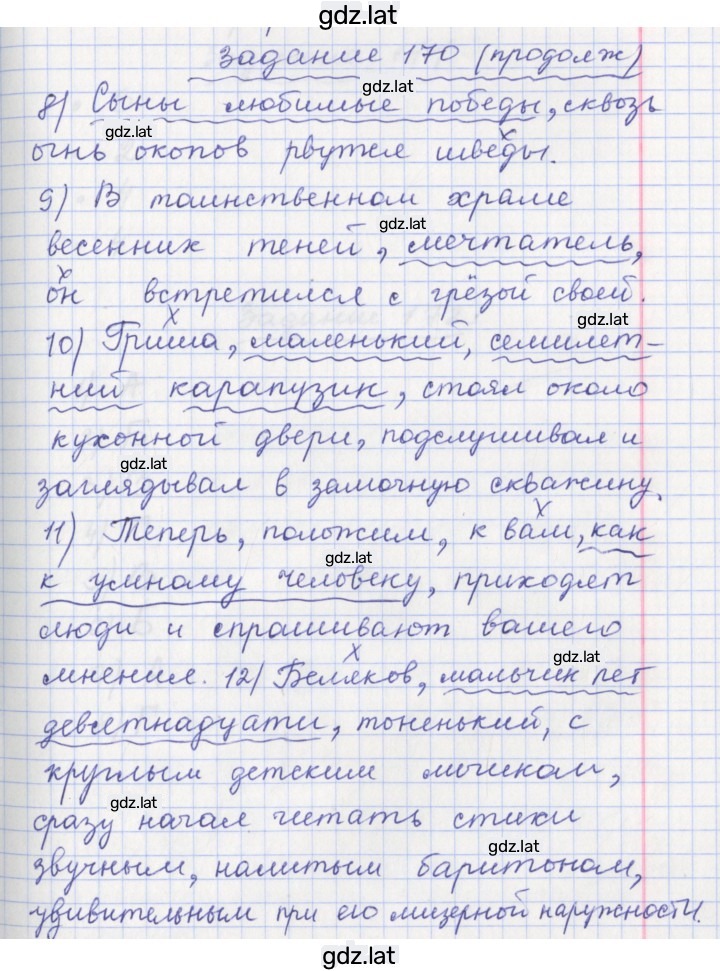 gdz.lat
задание 170 (продолж)
gdz.lat
8) Сыны любимые победы, сквозь
gdz.lat
огнь окопов рвутся шведы.
9) В таинственном храме
gdz.lat
весенних теней, мечтатель,
он встретился с грёзой своей.
gdz.lat
10) Гриша, маленький, семилет-
ний карапузик, стоял около
кухонной двери, подслушивал и
gdz.lat
заглядывал в замочную скважину.
11) Теперь, положим, к вам, как
gdz.lat
к умному человеку, приходят
люди и спрашивают вашего
gdz.lat
мнения. 12) Беляков, мальчик лет
девятнадцати, тоненький, с
круглым детским личиком,
gdz.lat
сразу начал читать стихи
gdz.lat
звучным, налитым баритоном,
удивительным при его мизерной наружности.
gdz.lat